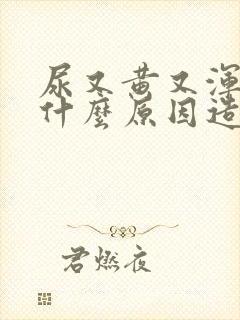 尿又黄又渾
什麼原因造
君燃夜